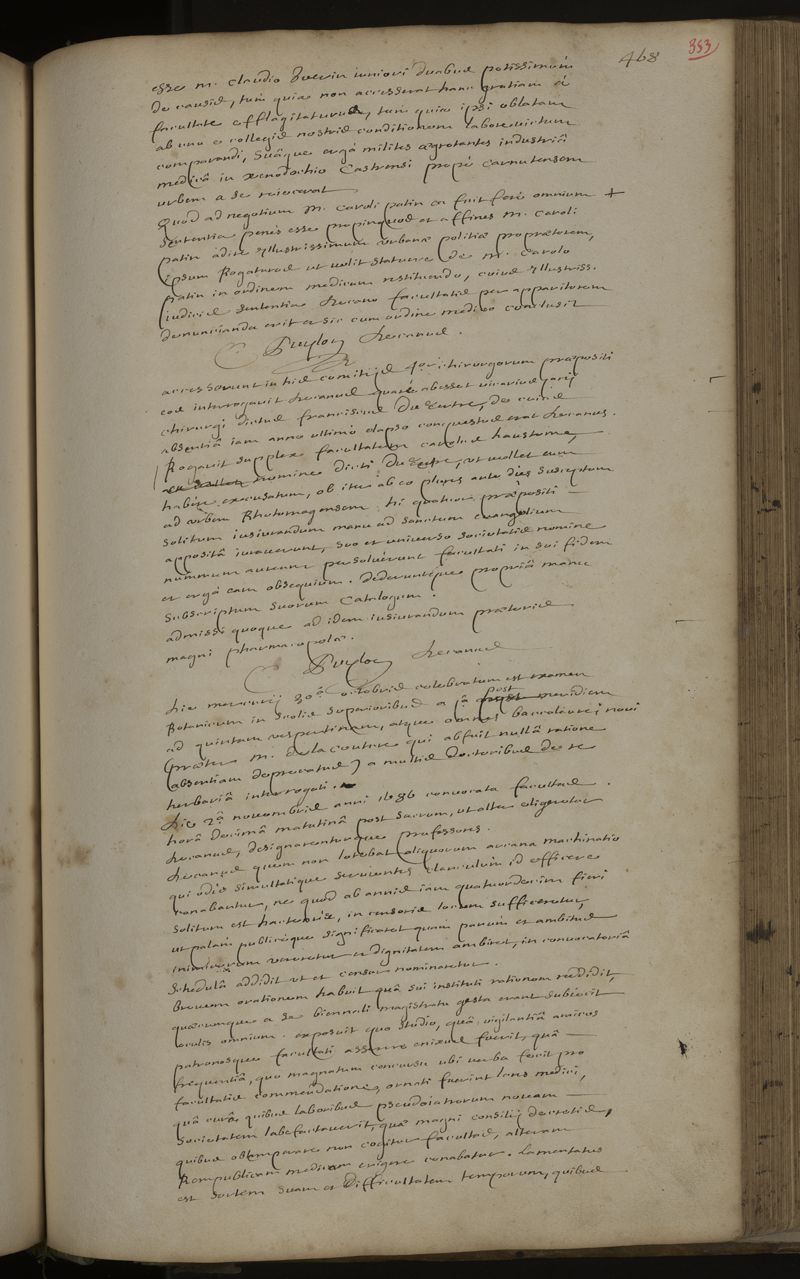 468 353
esse m. Claudio Guerin iuniori duabus potissimùm
de causis, tum quia non accesserat hanc gratiam à
facultate efflagitaturus, tum quia ipsi oblatam
ab uno è collegis nostris conditionem labore victum
comparandi, suâque ergà milites ægrotantes industriâ
medicâ in xenodochio Castrensi propè Carnutensem
urbem a se reiecerat
Quod ad negotium M. Caroli patin ea fuit ferè omnium +
sententia penès esse propinquos et affines M. Caroli
patin adire Illustrissimum urbanæ politiæ proprætorem,
ipsum Rogaturos ut velit statuere de M. Carolo
Patin in ordinem medicum restituendo, cuius Illustriss.
iudicis sententia Decano facultatis per apparitorem
denuncianda erit et sic cum ordine medico conclusit
Puylon Decanus.
accesserunt in his comitijs 4or chirurgorum præpositi
eos interrogavit Decanus quare abesset
chirurgi dictus franciscus Du Tertre, de cuius
absentiâ iam anno ultimò elapso conquestus erat Decanus.
Rogavit supplex facultatem Carolus haustome,
nomine dicti Du Tertre, ut vellet eum
habere excusatum, ob iter ab eo plures ante dies susceptum
ad urbem Rhotomagensem. hi quatuor præpositi
solitum iusiurandum manu ad sanctum evangelium
appositâ iuraverunt, suo et universo societatis nomine
nummum aureum persolverunt facultati in sui fidem
et ergà eam obsequium. Dederuntque propriâ manu
subscriptum suorum Catalogum.
admissi quoque ad idem iusiurandum prætoris
magni pharmacopolæ.
Puylon Decanus
Die mercurij 30â octobris celebratum est examen
Botanicum in scolis superioribus a 1â post meridiem
ad quintam vespertinam, atque omnes baccalaurei novi
(præter M. De la Couture qui abfuit nullâ ratione
absentiam deprecatus) a multis doctoribus de re
herbariâ interrogati.
Die 2â novembris anni 1686 convocata facultas
horâ decimâ matutinâ post sacrum, ut alter eligeretur
Decanus, designarenturque professores.
Decanus quem non latebat aliquorum arcana machinatio
qui odio simultatique servientes clanculùm id efficere
conabantur, ne quod ab annis iam quatuordecim fieri
solitum est hactenus, in censoris locum sufficeretur,
ut palàm publicèque significaret quàm parum et ambitus
inimicorum vereretur et dignitatem ambiret, in convocatoriâ
schedulâ addidit ut et censor nominaretur.
Brevem orationem habuit quâ sui instituti rationem reddidit,
quæcumque a se biennali magistratu gesta erant subiecit
oculis omnium. exposuit quo studio, quâ vigilantiâ amicos
patronosque facultati asserere enixus fuerit, quâ
frequentiâ, quo magnatum concursu ubi verba fecit pro
facultatis commendatione, ornati fuerint lares medici,
quâ curâ, quibus laboribus pseudoiatrorum novam
societatem labefactaverit, quæ magni consilij decretis,
quibus obtemperare non cogitur facultas, alteram
Rempublicam medicam erigere conabatur. lamentatus
est sortem suam et difficultatem temporum, quibus